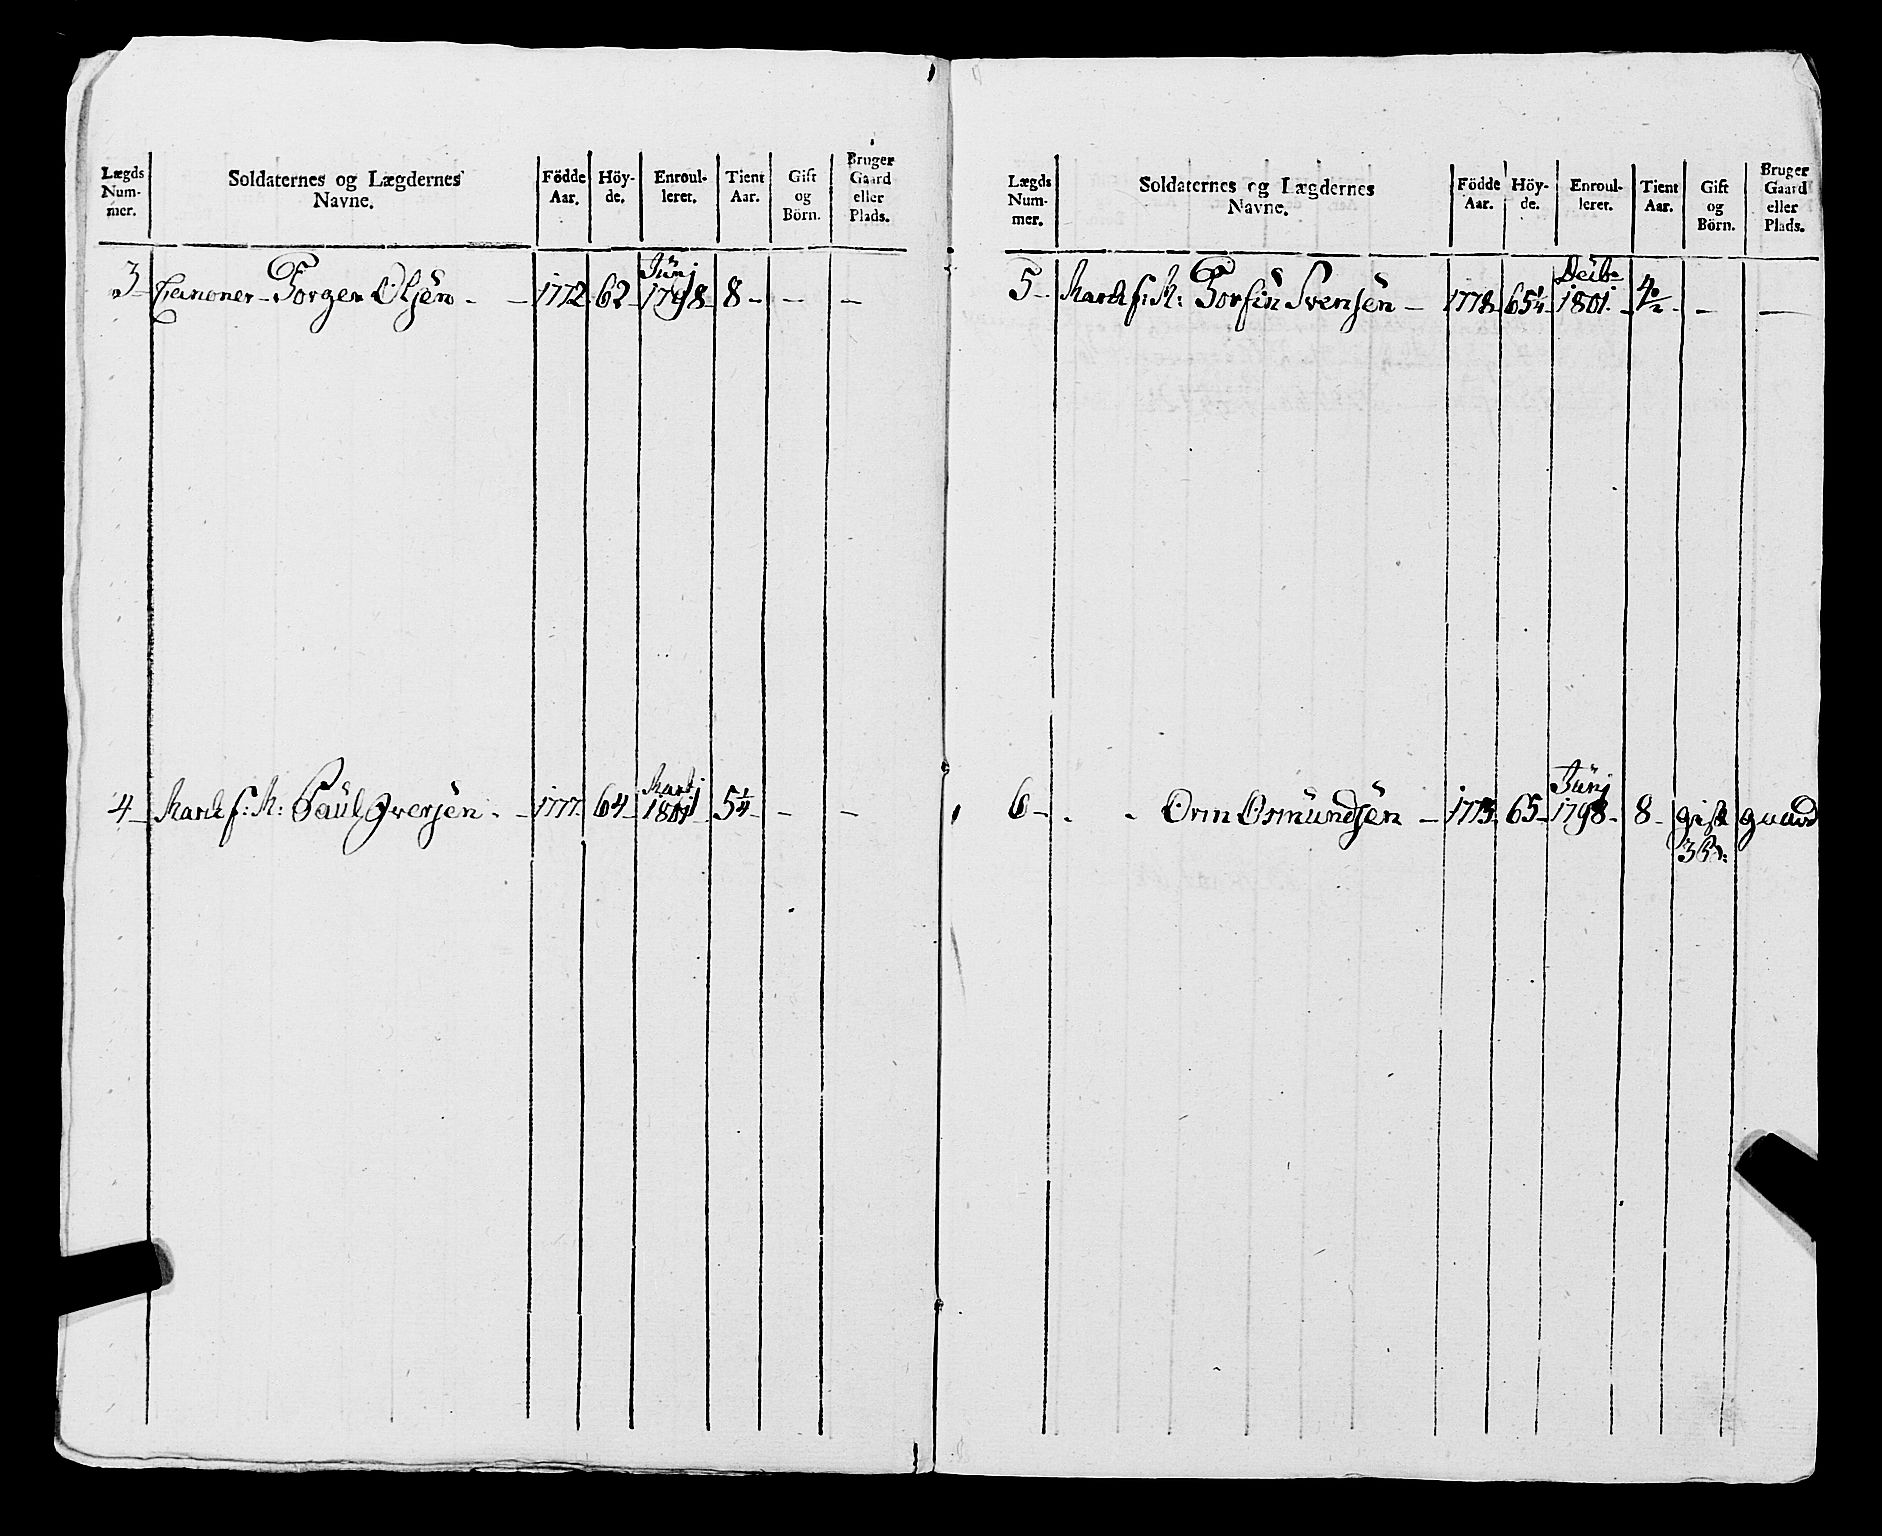 Lægds Num- mer. Soldaternes og Lægdernes Navne. Födde Aar. Höy- de. Enroul- leret. Tient Aar. Gift og Börn. Bruger Gaard eller Plads.
Junj
3 - Canoner - Torger Olsen - - 1772 62 - 1798 - 8 - - -
Martj
4 - March f: K: Paul Iversen - - 1777 - 64 - 1801 - 5¼ - - -
Lægds Num- mer. Soldaternes og Lægdernes Navne. Födde Aar. Höy- de. Enroul- leret. Tient Aar. Gift og Börn. Bruger Gaard eller Plads.
5 - March f: K: Torfin Svensen - 1778 - 65¼ - 1801 - - -
Junj
6 - - - Orm Osmundsen - 1773 - 65 - 1798 - 8 - gift gaard
3 B: